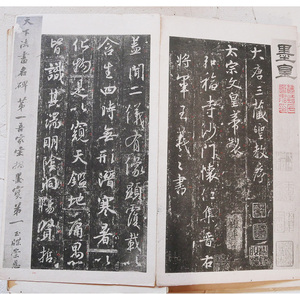 墨皇
大唐三藏聖教序
太宗文皇帝製
弘福寺沙門懷仁集晉右
將軍王羲之書
蓋聞二儀有像顯覆載以
含生四時無形潛寒暑以
化物是以窺天鑑地庸愚
皆識其端明陰洞陽賢哲
天下法書名碑第一吾家
墨寶第一